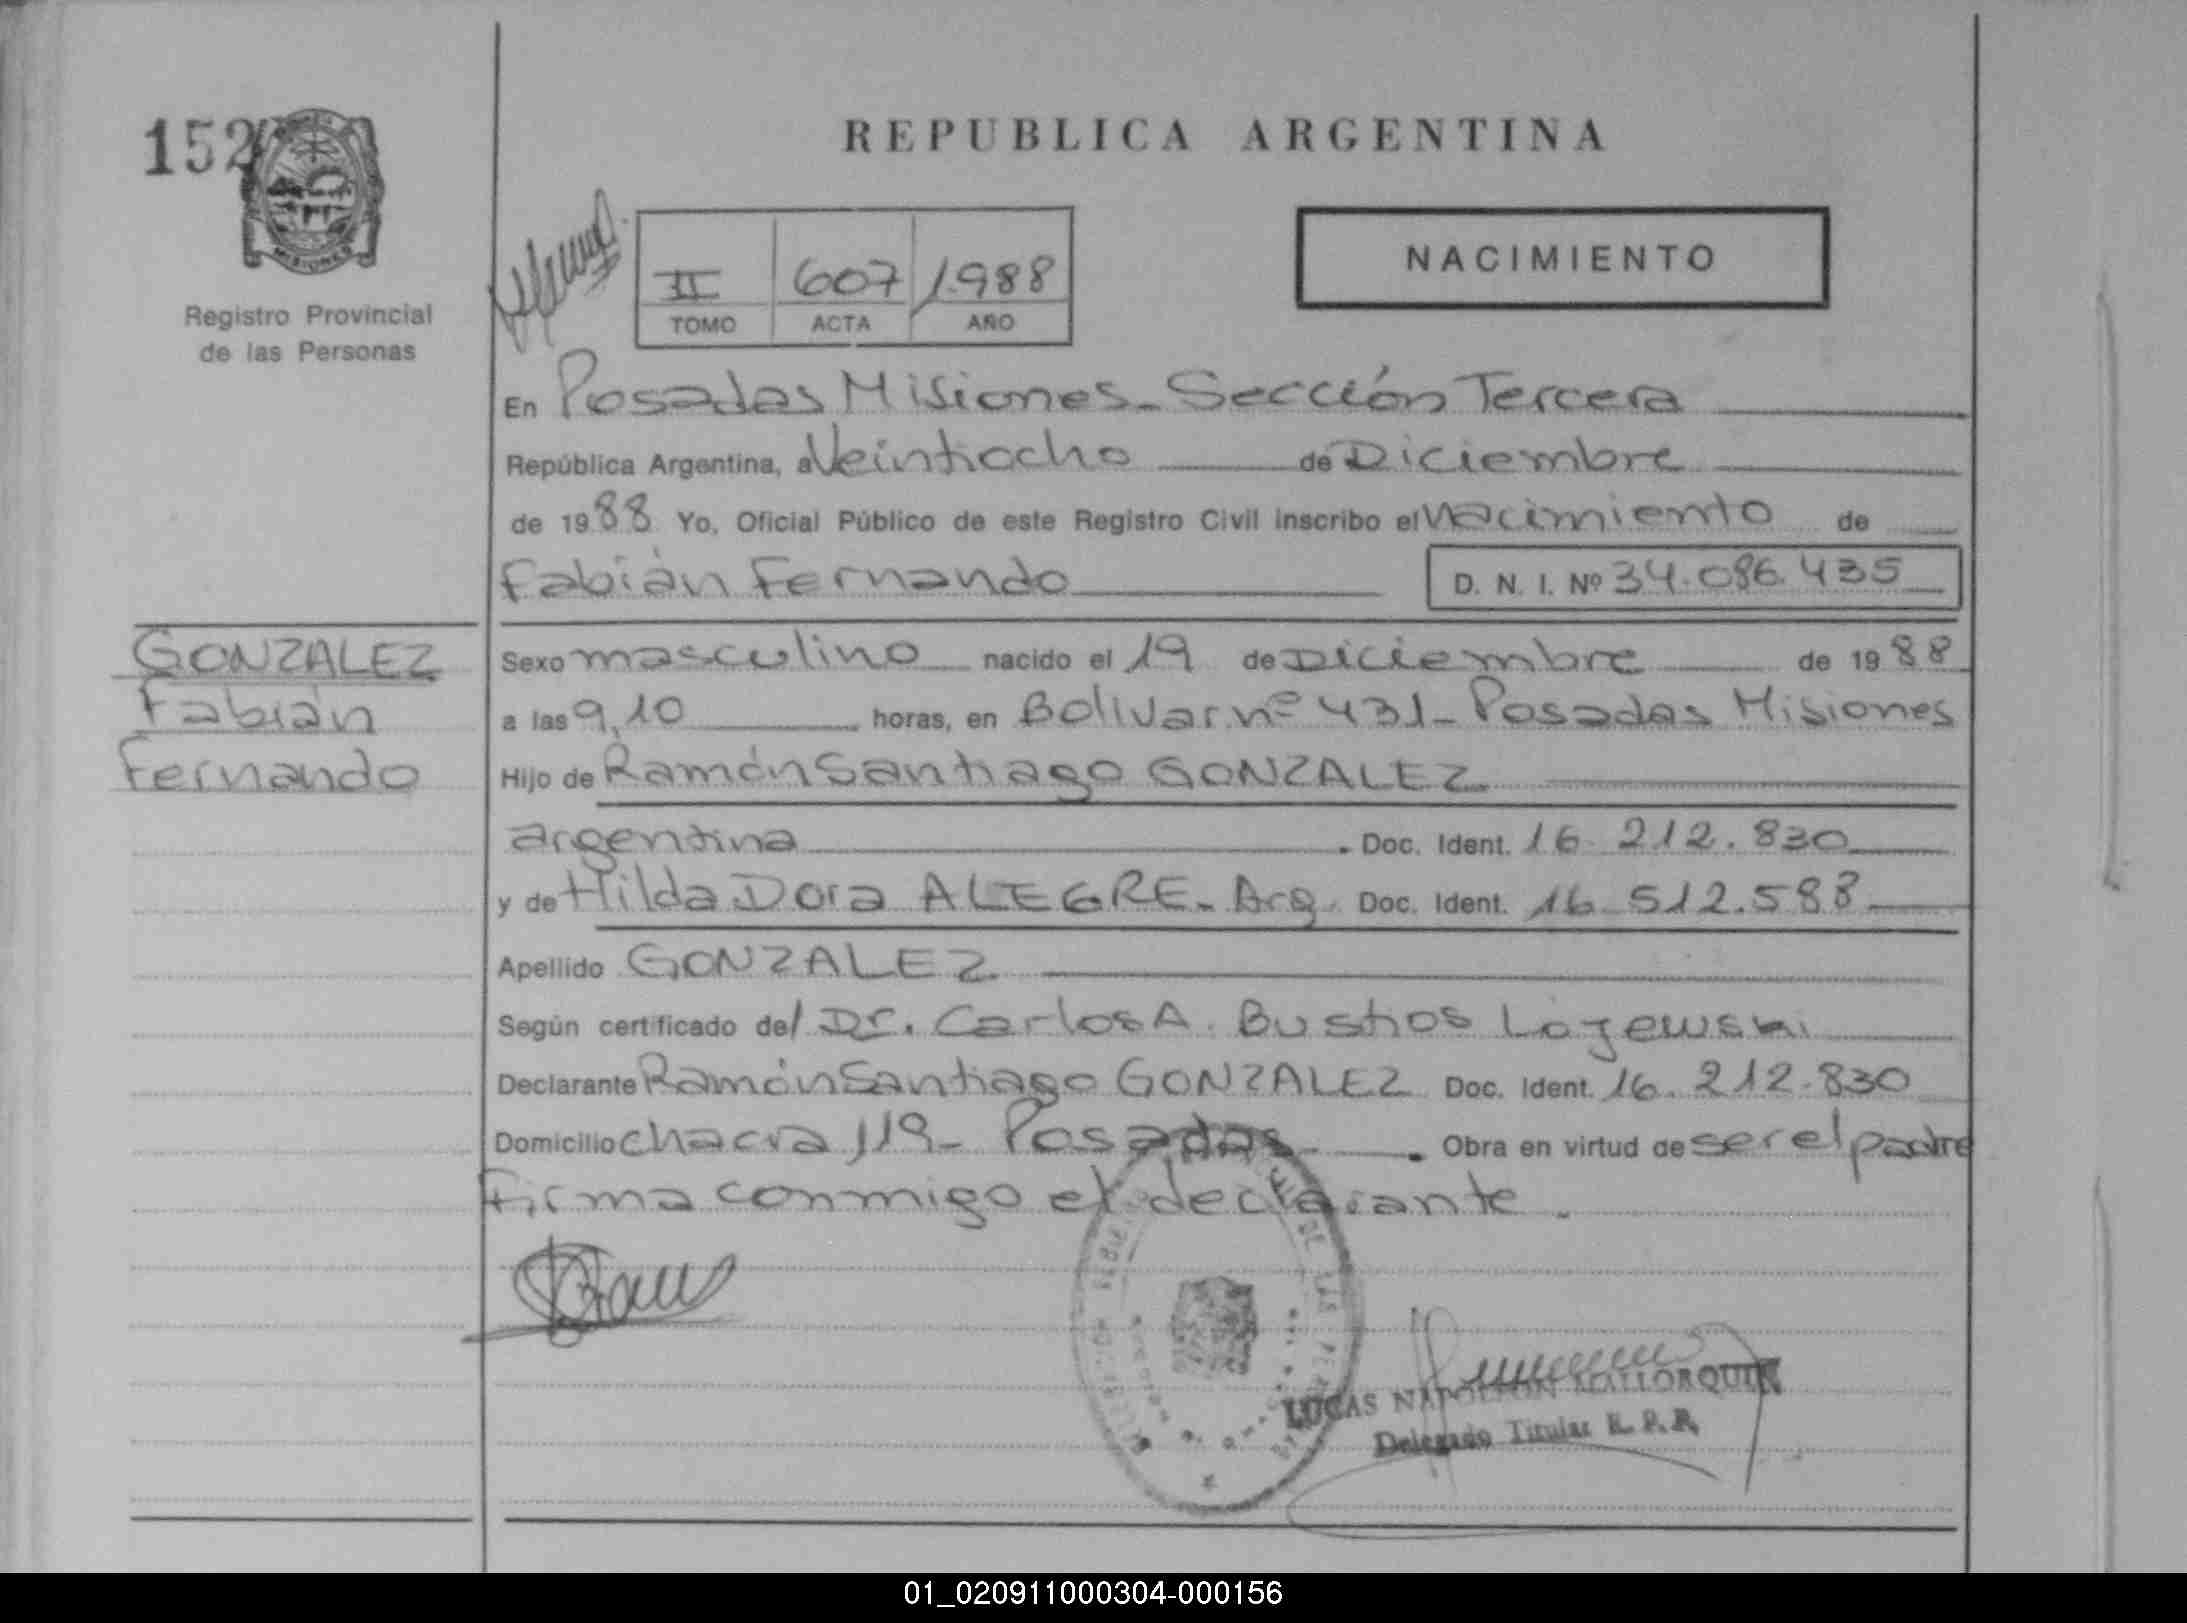 152
MISIONES
Registro Provincial
de las Personas
REPUBLICA ARGENTINA
II 607 1.988
TOMO ACTA AÑO
NACIMIENTO
En Posadas Misiones - Sección Tercera
República Argentina, a Veintiocho de Diciembre
de 1988 Yo, Oficial Público de este Registro Civil inscribo el Nacimiento de
Fabián Fernando D. N. I. Nº 34.086.435
GONZALEZ
Fabián
Fernando
Sexo masculino nacido el 19 de Diciembre de 1988
a las 9,10 horas, en Bolivar nº 431 - Posadas Misiones
Hijo de Ramón Santiago GONZALEZ
argentina. Doc. Ident. 16.212.830
y de Hilda Dora ALEGRE - Arg. Doc. Ident. 16.512.588
Apellido GONZALEZ
Según certificado del Dr. Carlos A. Bustios
Declarante Ramón Santiago GONZALEZ Doc. Ident. 16.212.830
Domicilio chacra 119 - Posadas. Obra en virtud de ser el padre
Firma conmigo el declarante.
DE LAS
LUCAS NAPOLEON MALLORQUIN
Delegado Titular R. P. P.
01_020911000304-000156